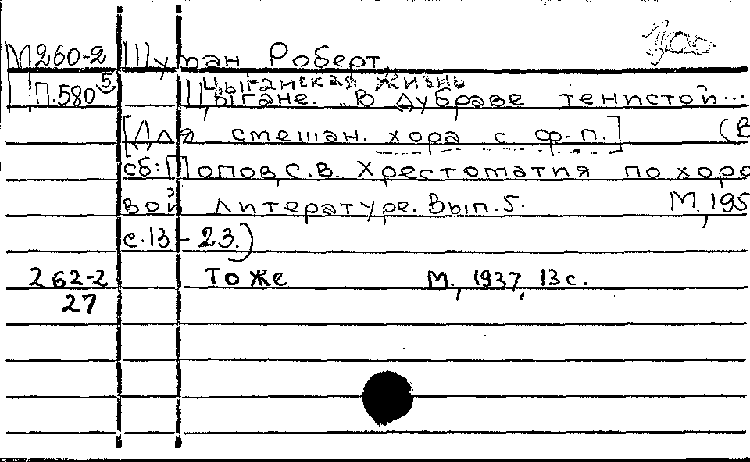 М260-2 Шуман Роберт
Цыганская жизнь
П.580⁵ Цыгане. В дубраве тенистой...
[Для смешан. хора с ф-п.] (В
сб: Попов, С.В. Хрестоматия по хоро
вой литературе. Вып. 5. М, 195
с. 13 - 23.)
262-2 То же М., 1937, 13 с.
27